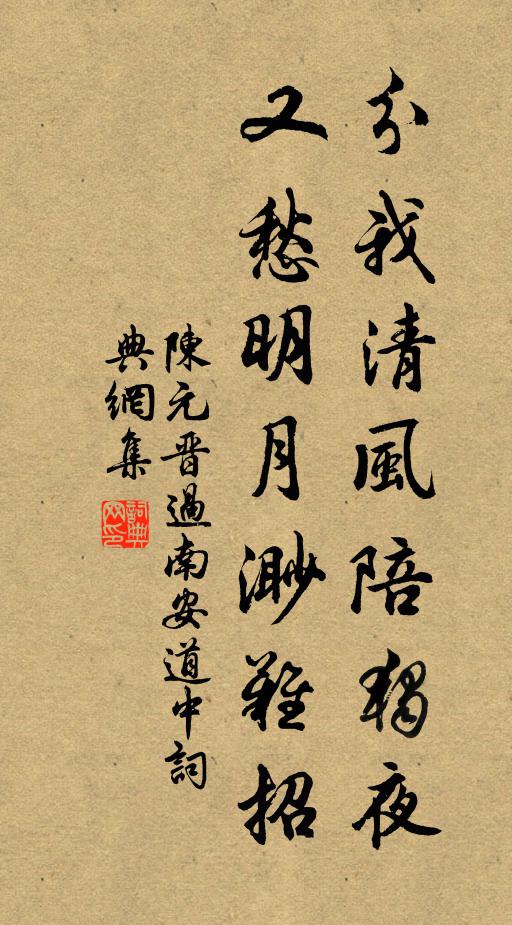 分我清風陪獨夜
又愁明月渺難招
陳元晋過南安道中詞
典網集
詞典
网印